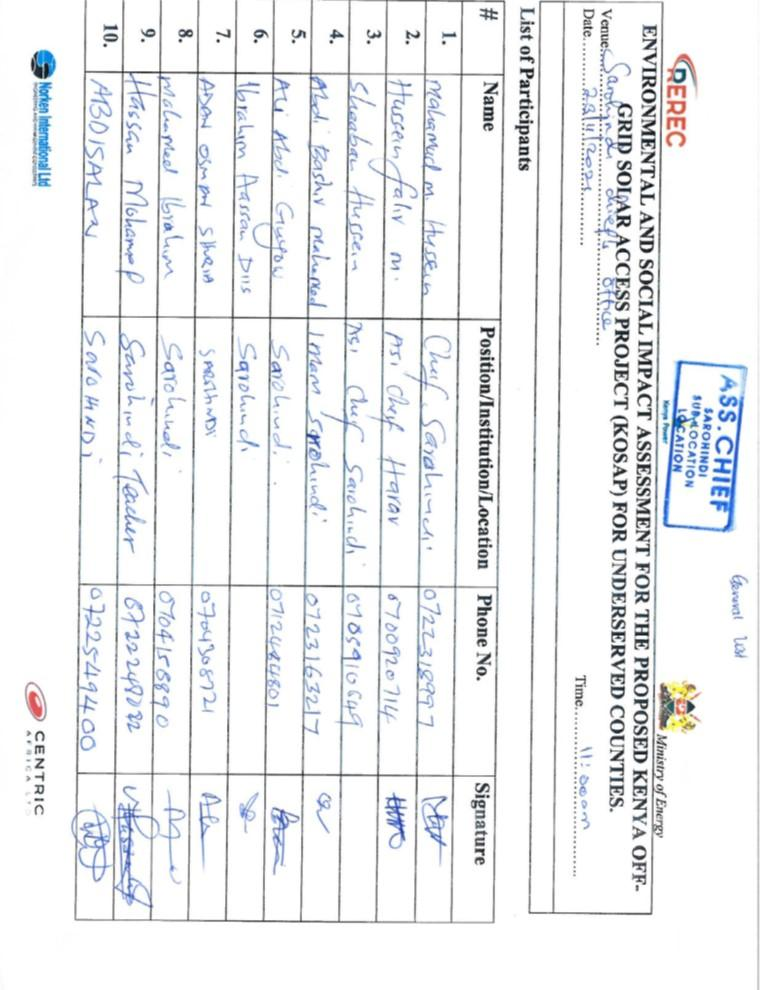 General list
REREC
ASS. CHIEF
SAROHINDI
SUB LOCATION
LOCATION
Kenya Power
Ministry of Energy
ENVIRONMENTAL AND SOCIAL IMPACT ASSESSMENT FOR THE PROPOSED KENYA OFF-
GRID SOLAR ACCESS PROJECT (KOSAP) FOR UNDERSERVED COUNTIES.
Venue: Sarohindi chief's office
Date 28/4/2021 Time 11:00am
List of Participants
# Name Position/Institution/Location Phone No. Signature
1. Mohamed M. Hussein Chief Sarohindi 0722318997
2. Hussein Falir M. Asi Chief Harar 0700920714
3. Shaaban Hussein Asi Chief Sarohindi 0705910649
4. Abdi Bashir Mohamed Imam Sarohindi 0723163217
5. Ali Abdi Guyow Sarohindi 0712444801
6. Ibrahim Hassan Diis Sarohindi
7. ADAN OSMAN 0704308721
8. Mohamed Ibrahim Sarohindi 0704158890
9. Hassan Mohamed Sarohindi Teacher 0722248022
10. ABDISALAN SAROHINDI 0722549400
Norken International Ltd
CENTRIC
AFRICA LTD